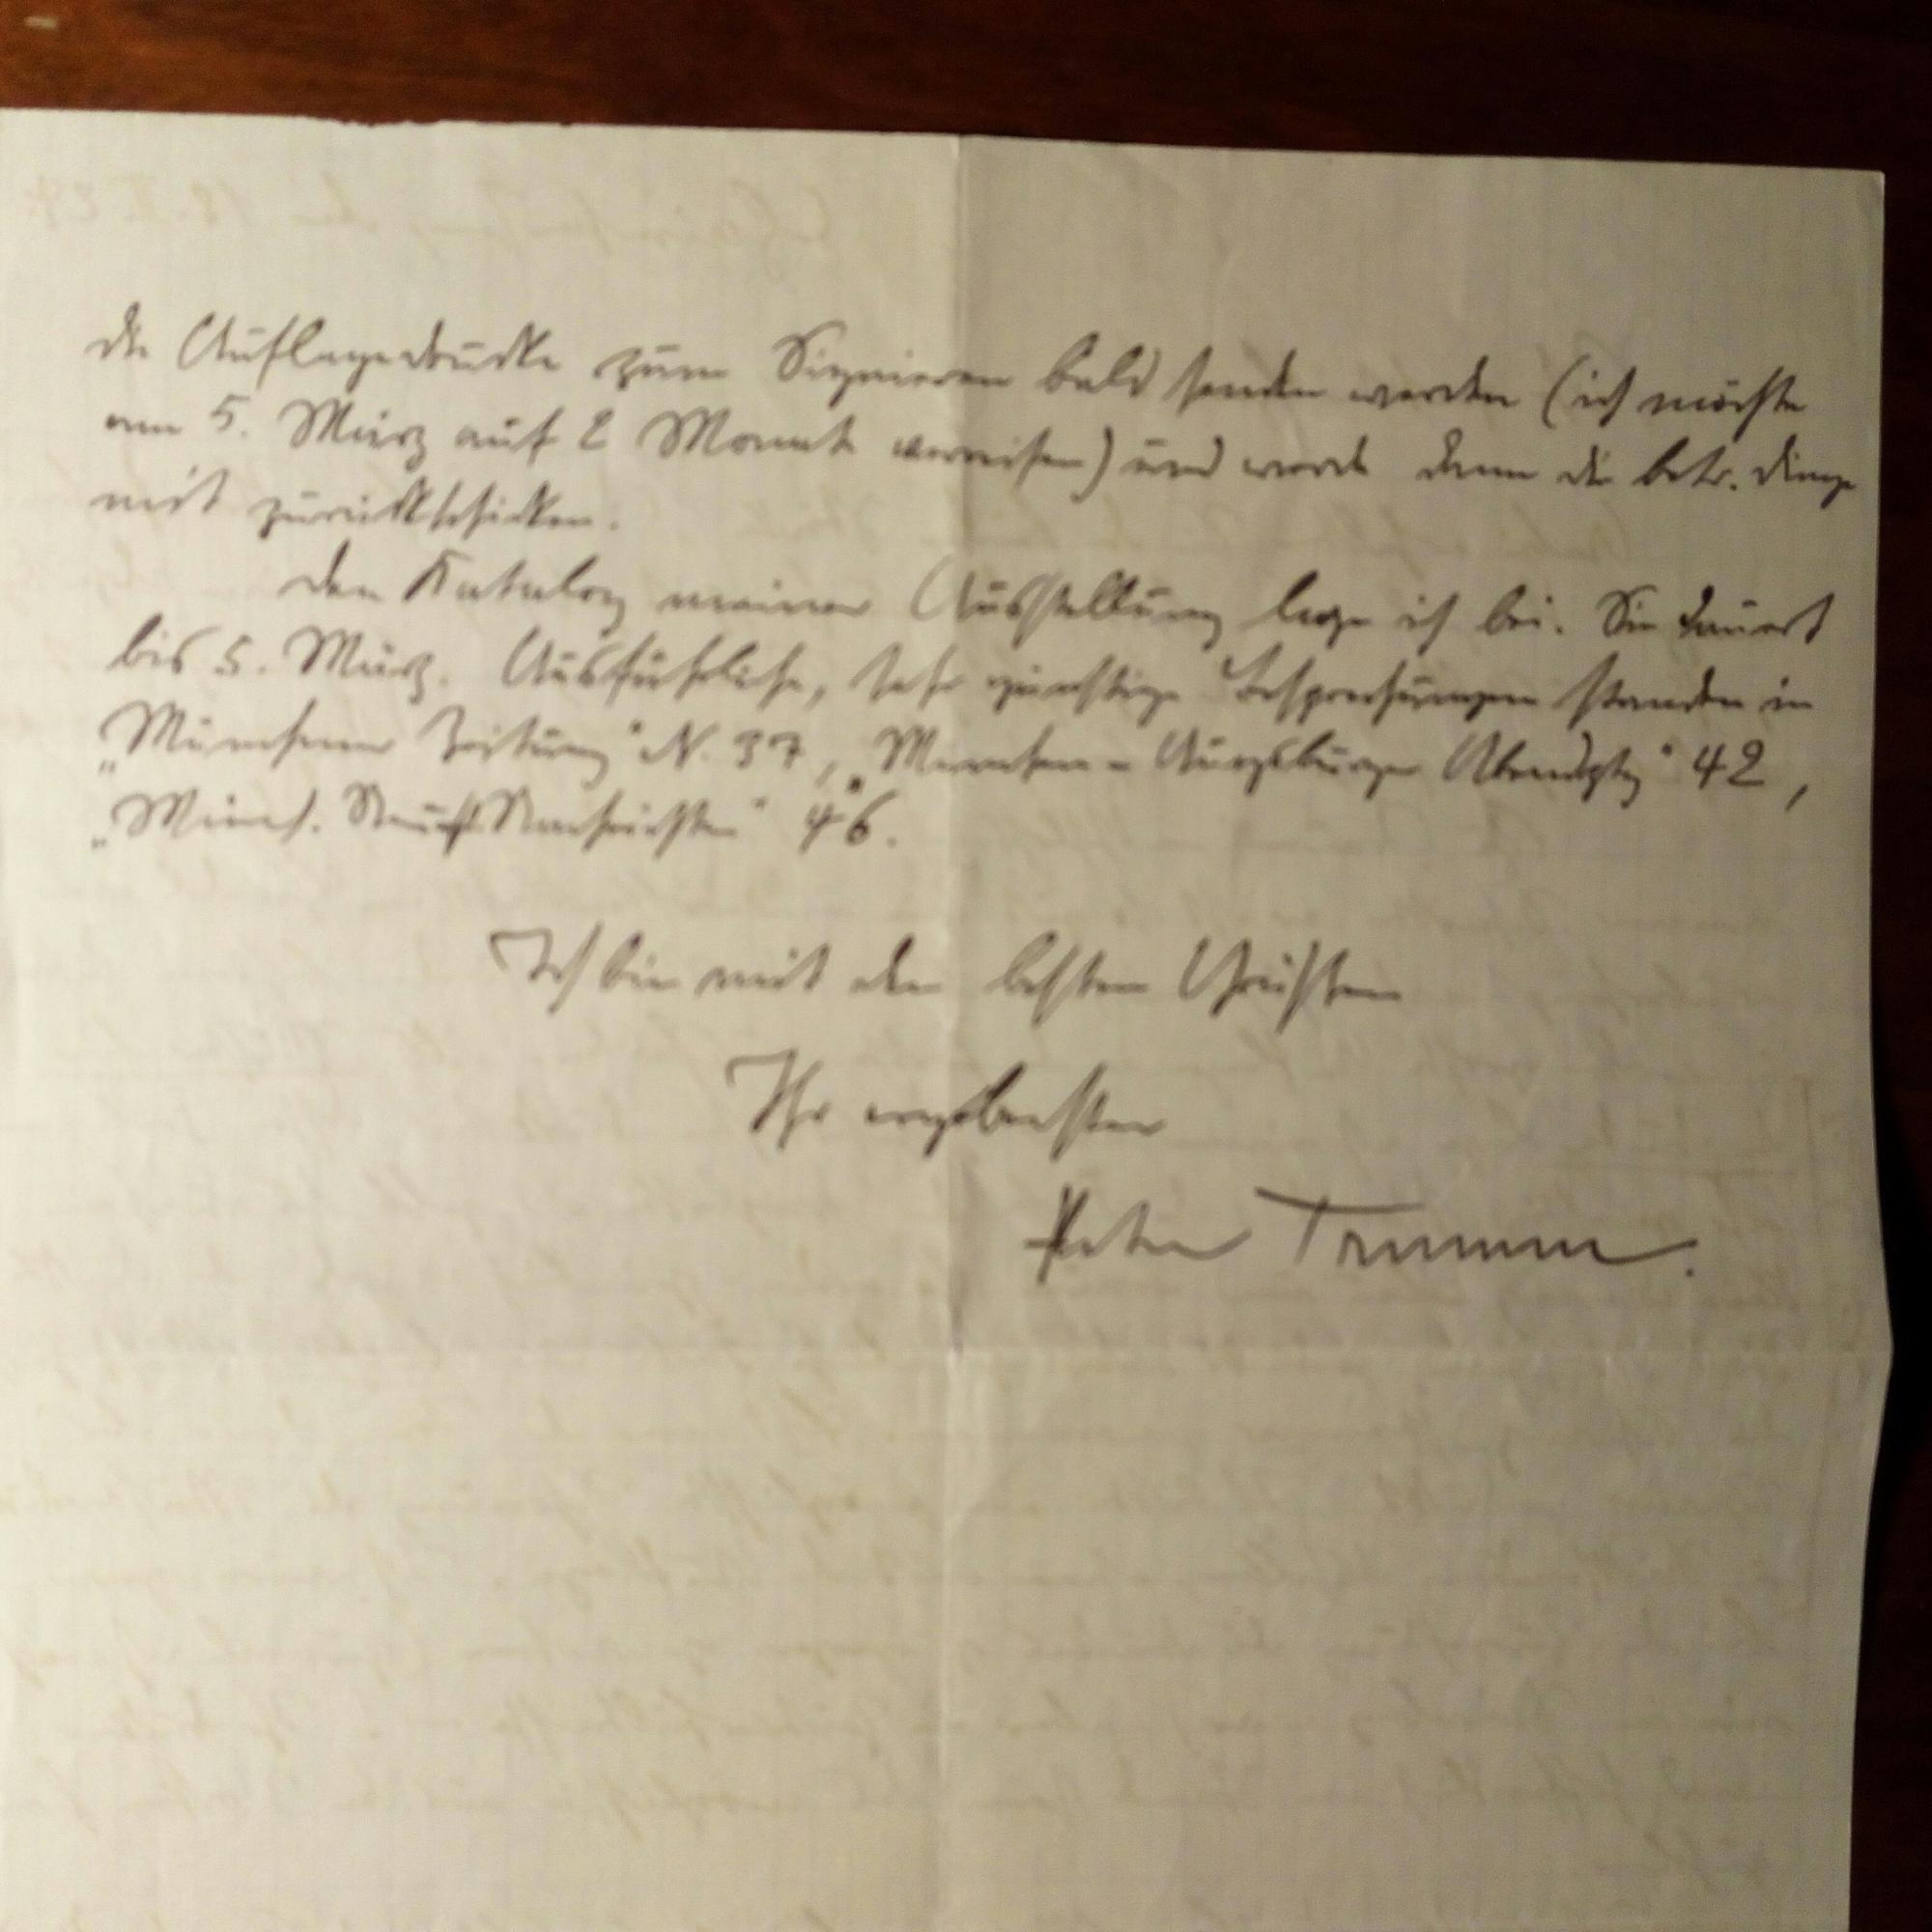 die Auflagedrucke zum Signieren bald senden werden (ich möchte
am 5. März auf 2 Monate verreisen) und werde dann die betr. Dinge
mit zurückschicken.
Den Katalog meiner Ausstellung lege ich bei. Sie dauert
bis 5. März. Ausführliche, sehr günstige Besprechungen standen in
„Münchener Zeitung" N. 37, „München-Augsburger Abendztg" 42,
„Münch. Neuest Nachrichten" 46.
Ich bin mit den besten Grüssen
Ihr ergebenster
Peter Trumm.